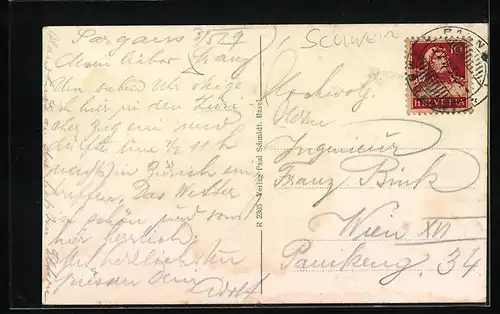 Sargans 3/5 29
Mein lieber Franz
Um sieben Uhr steige
ich hier in den Züri
cher Zug ein und
dürfte um ½ 11 h
nachts in Zürich ein
treffen. Das Wetter
ist schön und sonst
hier herrlich.
Mit herzlichsten
Grüssen Dein
Adolf
R 2305 Verlag Paul Schmidt, Basel
SCHWEIZ
BAHN
10
HELVETIA
Hochwolg.
Herrn
Ingenieur
Franz Bink
Wien XVI
Panikeng. 34